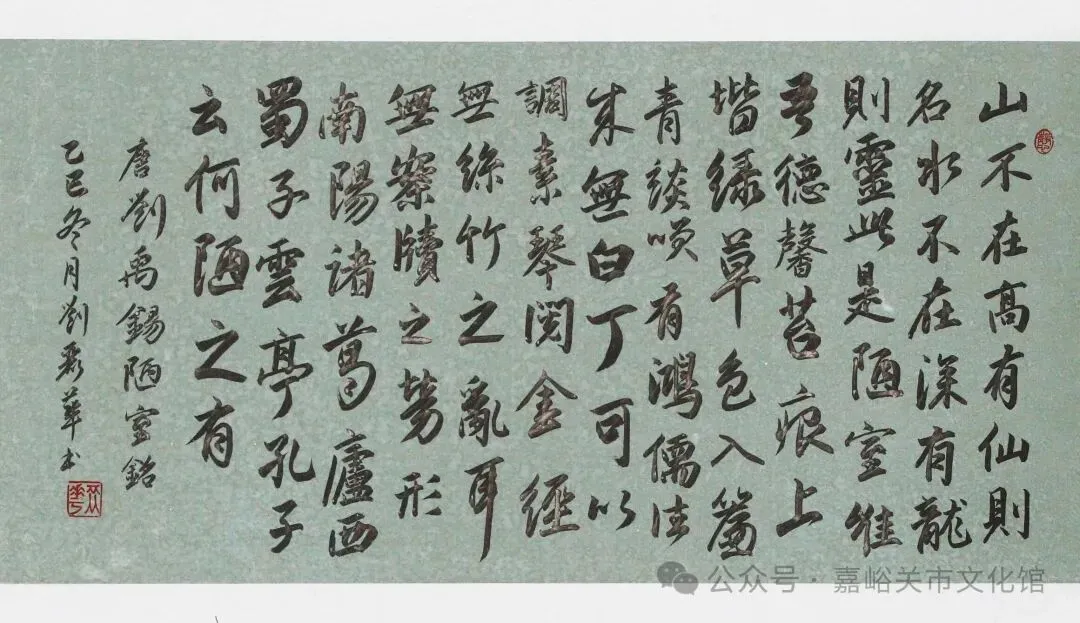 山不在高有仙則
名水不在深有龍
則靈此是陋室維
吾德馨苔痕上
堦綠草色入簾
青談咲有鴻儒往
来無白丁可以
調素琴閱金經
無絲竹之亂耳
無案牘之勞形
南陽諸葛廬西
蜀子雲亭孔子
云何陋之有
唐劉禹錫陋室銘
乙巳冬月劉華书
公众号·嘉峪关市文化馆